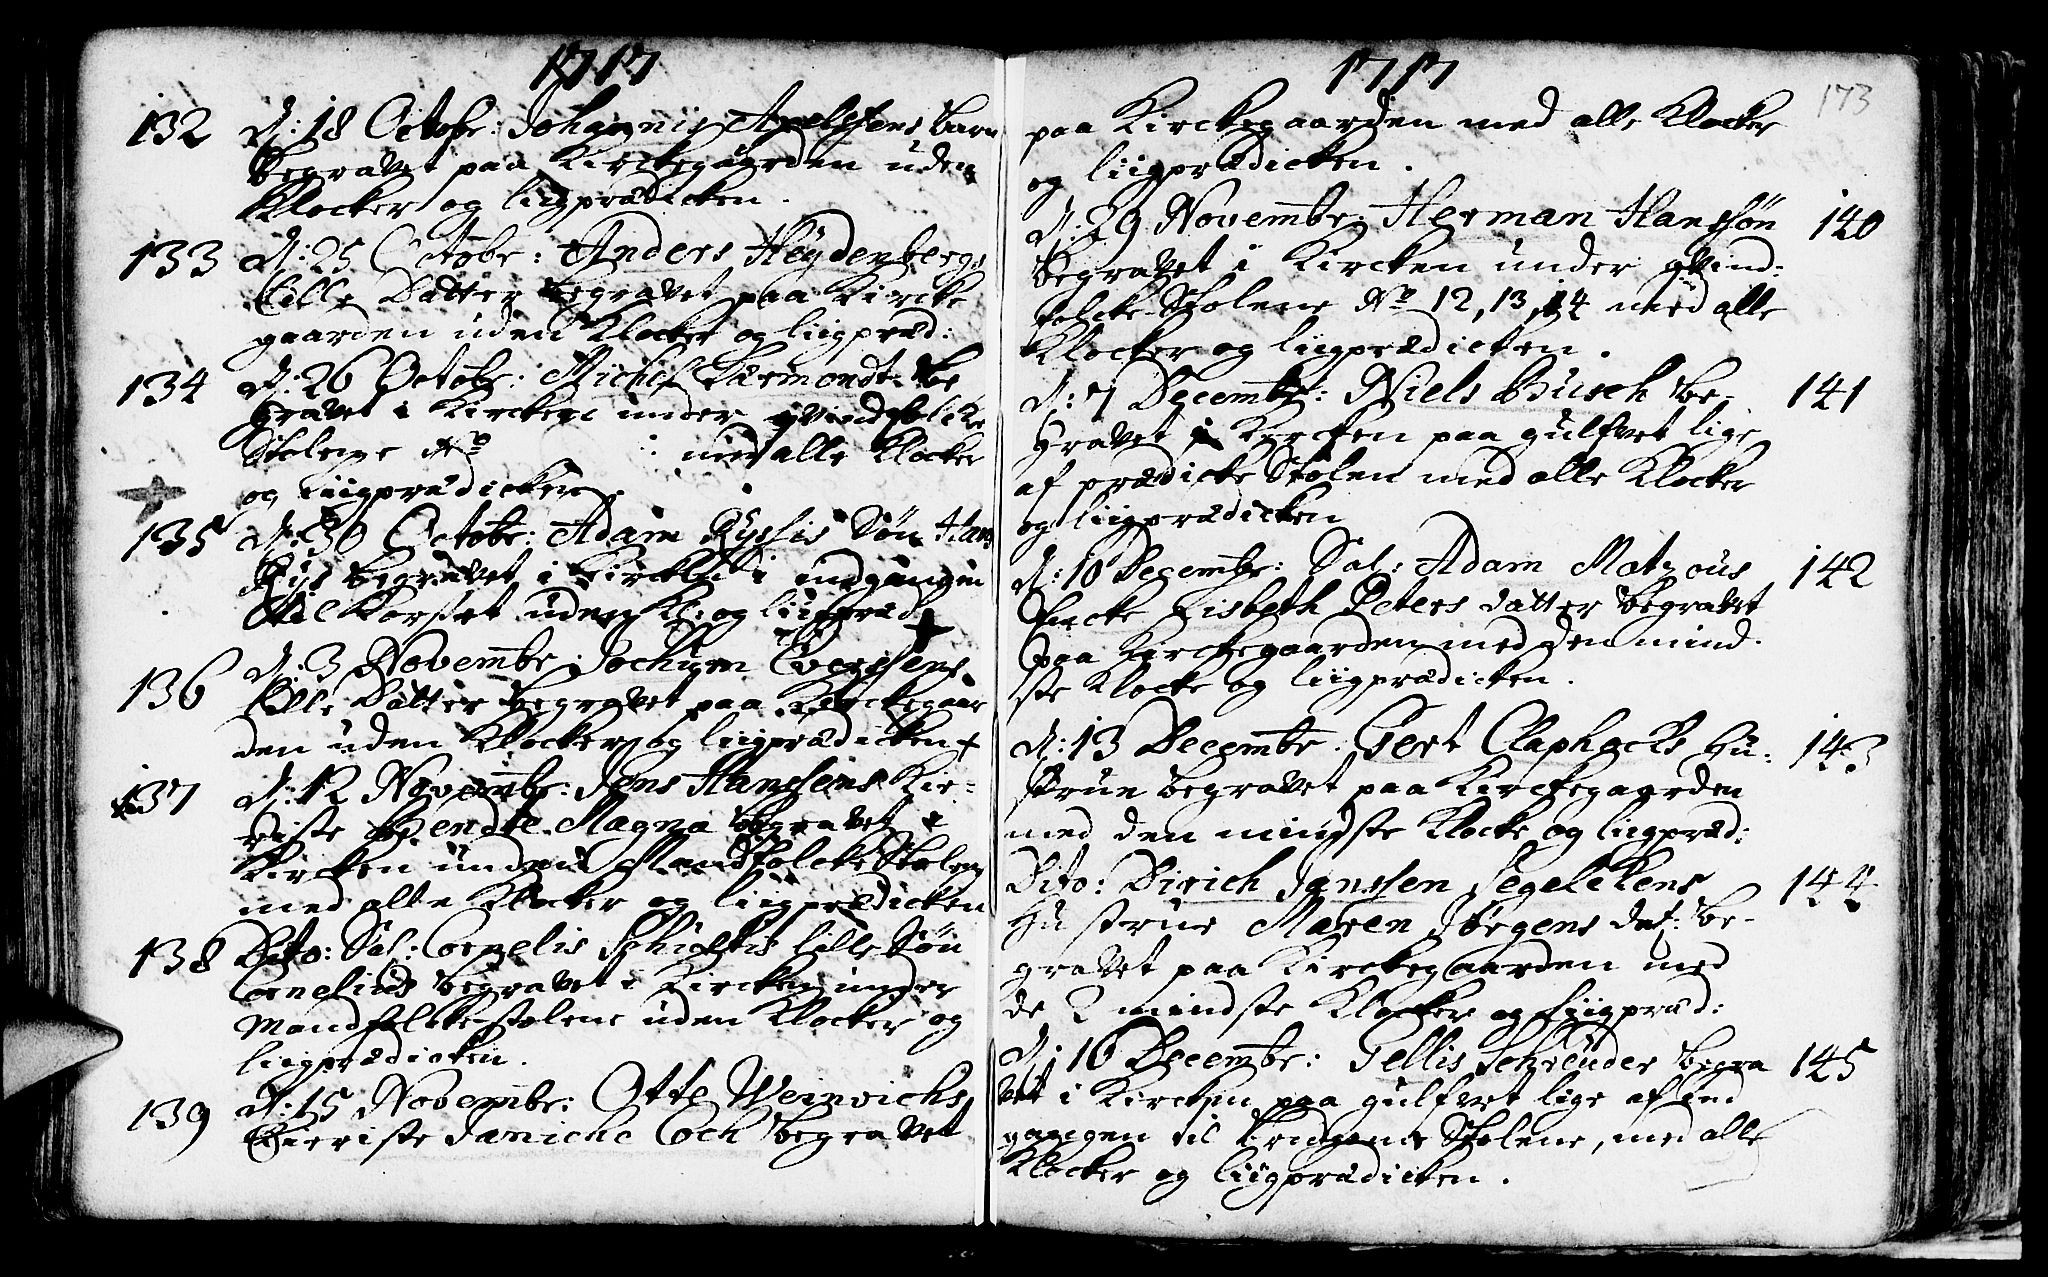 1717
132 D: 18 Octobr: Johannis Apelsens barn
begravet paa Kirckegaarden uden
Klocker og liigprædicken.
133 D: 25 Octobr: Anders Høydenbergs
lille Datter begravet paa Kircke
gaarden uden Klocker og liigpræd:
134 D: 26 Octobr: Michel Dermondt be
gravet i Kircken under qvindfolcke
Stolene No med alle Klocker
og liigprædicken.
135 D: 30 Octobr: Adam Ryssis Søn Hans
Rys begravet i Kircken i indgangen
til Korset uden Kl: og liigpræd
136 D: 3 Novembr: Jochum Everssens
lille Datter begravet paa Kirckegaar
den uden Klocker og liigprædicken
137 D: 12 Novembr: Jens Hanssens Kie-
riste Bendte Magna begravet i
Kircken under Mandfolcke Stolene
med alle Klocker og liigprædicken
138 Dito: Sal: Cornelis Schultis lille Søn
Cornelius begravet i Kircken under
Mandfolcke-stolene uden Klocker og
liigprædicken.
139 D: 15 Novembr: Otte Weinvichs
Kieriste Janiche Coch begravet
1717
173
paa Kirckegaarden med alle Klocker
og liigprædicken.
D: 29 Novembr: Herman Hanssøn 140
begravet i Kircken under qvind-
folcke Stolene No 12, 13, 14 med alle
Klocker og liigprædicken.
D: 7 Decembr: Niels Busch be- 141
gravet i Kircken paa gulfvet lige
af prædicke Stolen med alle Klocker
og liigprædicken
D: 10 Decembr: Sal: Adam Matzous 142
Encke Lisbeth Peters datter begravet
paa Kirckegaarden med den mind-
ste Klocke og liigprædicken.
D: 13 Decembr: Gert Claphacks Hu- 143
strue begravet paa Kirckegaarden
med den mindste Klocke og liigpræd:
Dito: Dirich Janssen Segelckens 144
Hustrue Maren Jørgens dat: be-
gravet paa Kirckegaarden med
de 2 mindste Klocker og liigpræd:
D: 16 Decembr: Gellis Schreuder begra 145
vet i Kircken paa gulfvet lige af ind
gangen til Stolene, med alle
Klocker og liigprædicken.